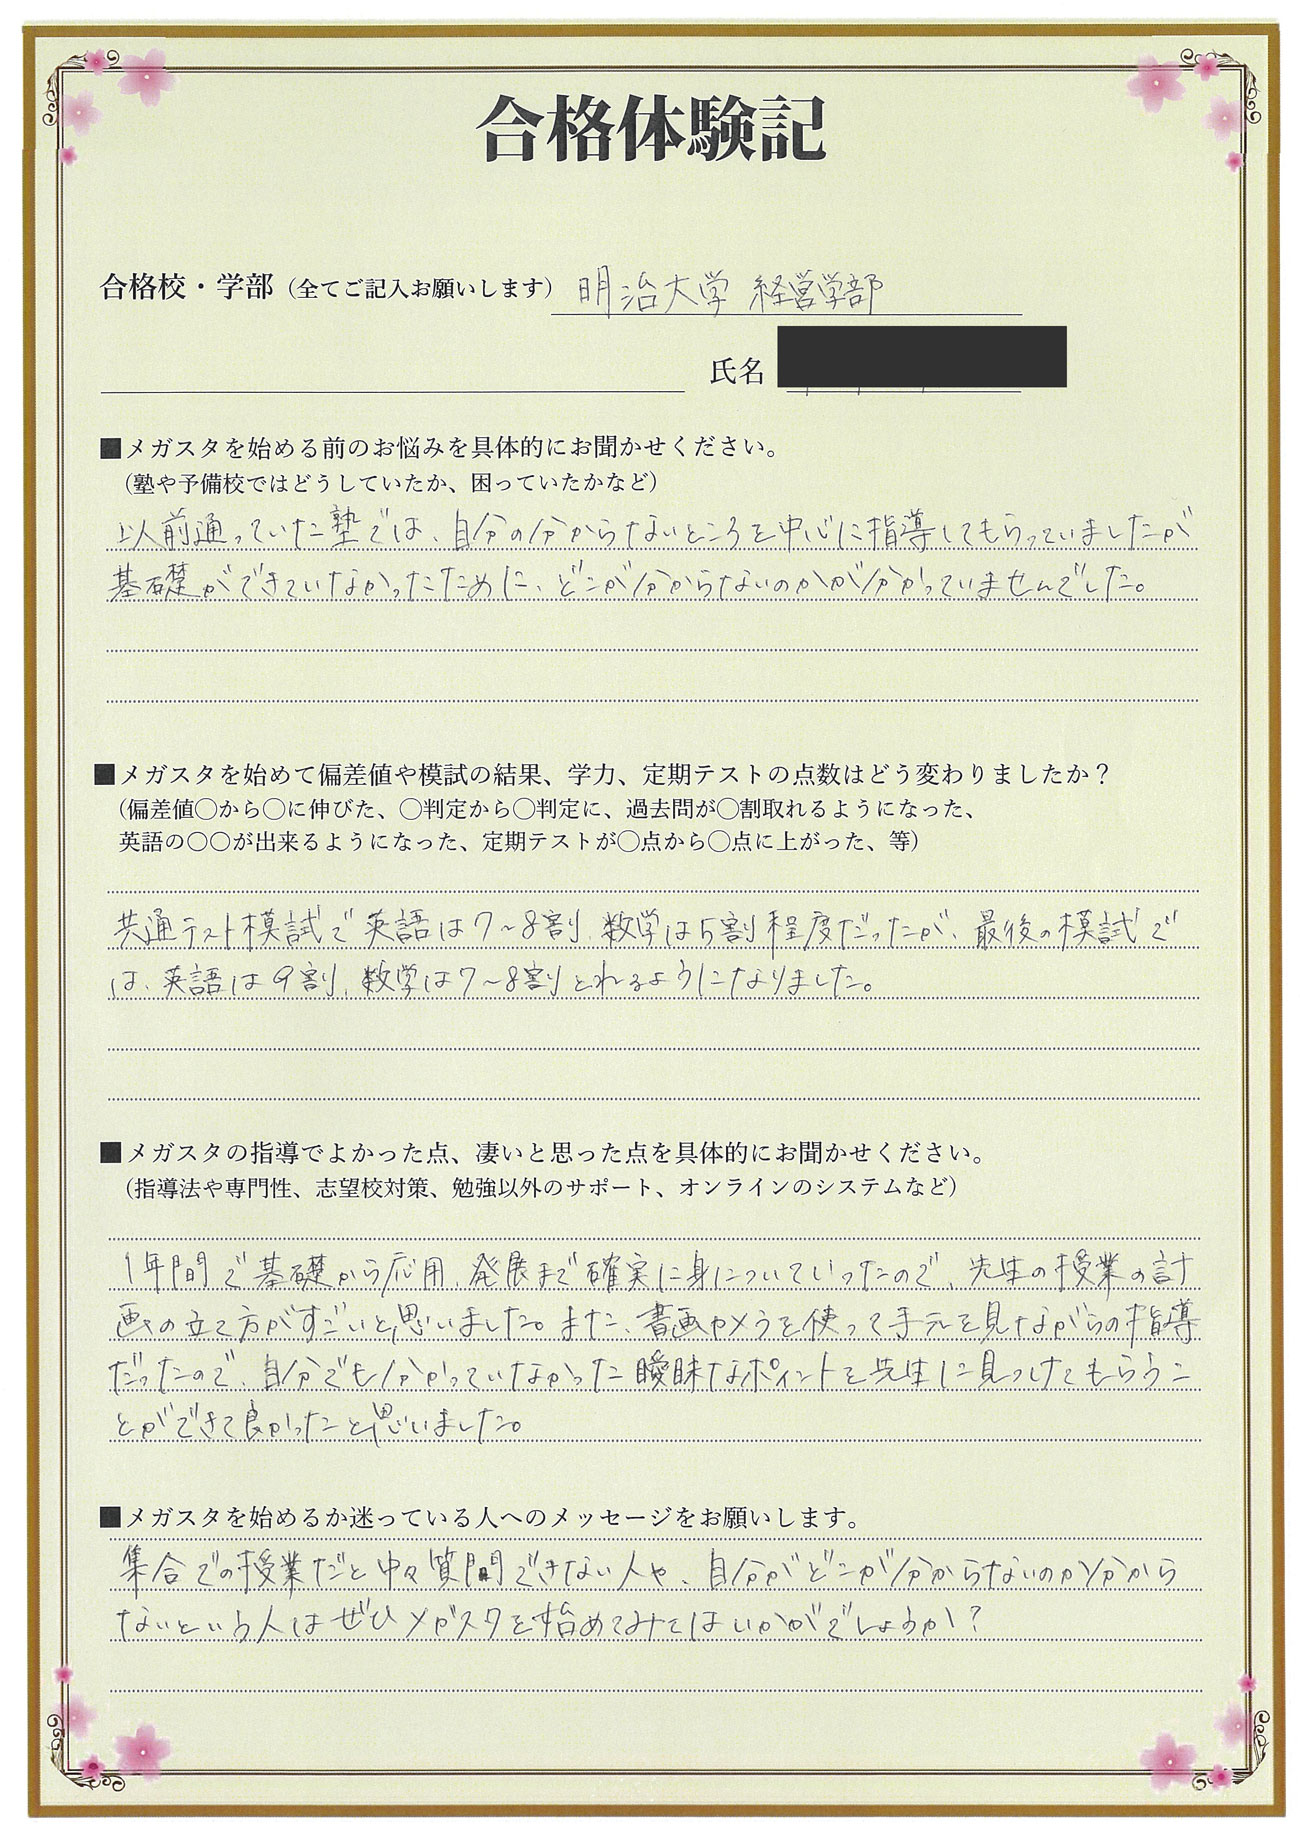 合格体験記
合格校・学部（全てご記入お願いします） 明治大学 経営学部
氏名
■メガスタを始める前のお悩みを具体的にお聞かせください。
（塾や予備校ではどうしていたか、困っていたかなど）
以前通っていた塾では、自分の分からないところを中心に指導してもらっていましたが
基礎ができていなかったために、どこが分からないのかが分かっていませんでした。
■メガスタを始めて偏差値や模試の結果、学力、定期テストの点数はどう変わりましたか？
（偏差値〇から〇に伸びた、〇判定から〇判定に、過去問が〇割取れるようになった、
英語の〇〇が出来るようになった、定期テストが〇点から〇点に上がった、等）
共通テスト模試で英語は7～8割、数学は5割程度だったが、最後の模試で
は、英語は9割、数学は7～8割とれるようになりました。
■メガスタの指導でよかった点、凄いと思った点を具体的にお聞かせください。
（指導法や専門性、志望校対策、勉強以外のサポート、オンラインのシステムなど）
1年間で基礎から応用、発展まで確実に身についていったので、先生の授業の計
画の立て方がすごいと思いました。また、書画カメラを使って手元を見ながらの指導
だったので、自分でも分かっていなかった曖昧なポイントを先生に見つけてもらうこ
とができて良かったと思いました。
■メガスタを始めるか迷っている人へのメッセージをお願いします。
集合での授業だと中々質問できない人や、自分がどこが分からないのか分から
ないという人はぜひメガスタを始めてみてはいかがでしょうか？